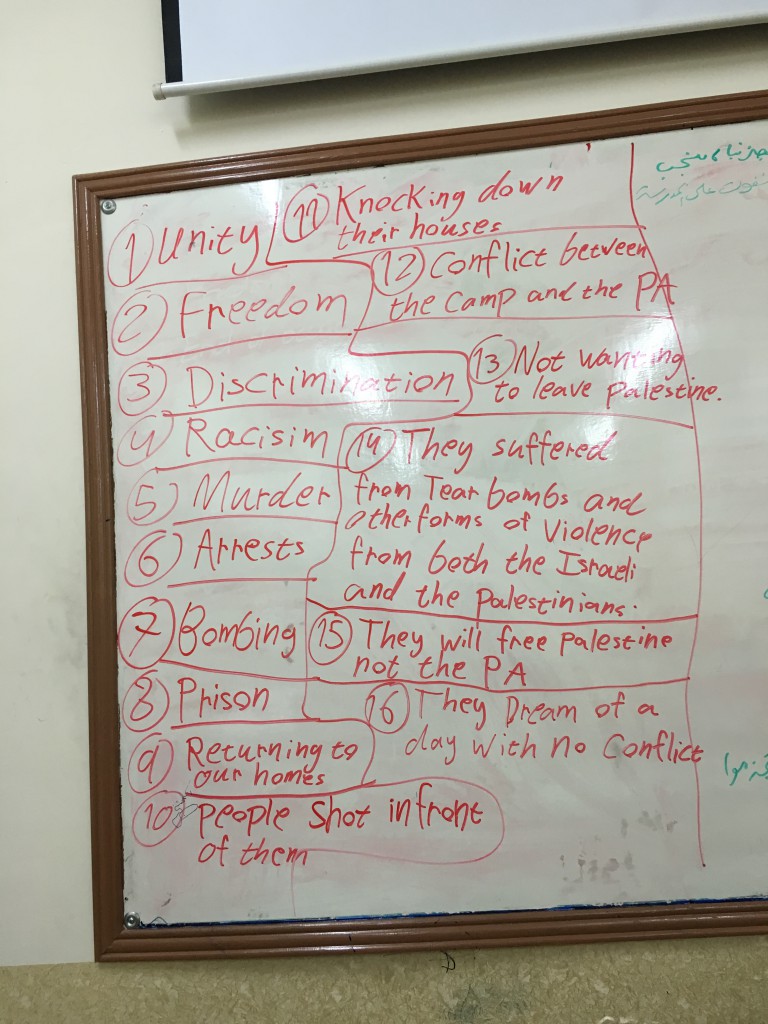 ① Unity
② Freedom
③ Discrimination
④ Racisim
⑤ Murder
⑥ Arrests
⑦ Bombing
⑧ Prison
⑨ Returning to
our homes
⑩ people shot infront
of them
⑪ Knocking down
their houses
⑫ Conflict between
the Camp and the PA
⑬ Not wanting
to leave palestine.
⑭ They suffered
from Tear bombs and
other forms of Violence
from both the Israeli
and the palestinians.
⑮ They will free palestine
not the PA
⑯ They Dream of a
day with no Conflict